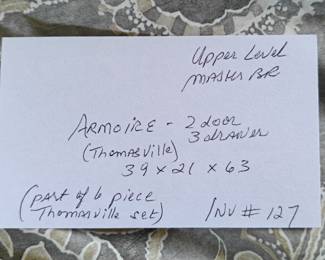 Upper Level
Master BR
Armoire - 2 door
3 drawer
(Thomasville)
39 x 21 x 63
(part of 6 piece
Thomasville set)
Inv # 127